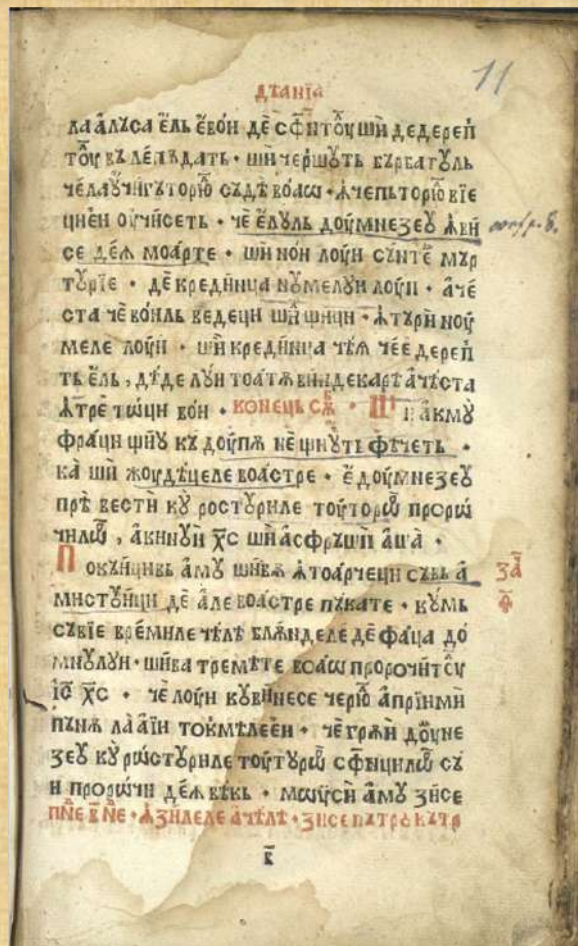 дѣанїа
11
лаалꙋса ель евои де сфнтоу ши дедереп
тоу въ лепъдатъ · ши чершꙋтъ бърбатꙋль
челаꙋчигъторю съдѣ воаѡ · ꙟчепъторю вїе
циеи оучисетъ · че елꙋль доумнезеꙋ ꙟви
се деѧ моарте · ши нои лоуи сънте мър
тꙋрїе · де кредиинца нꙋмелꙋи лоуи · аче
ста че воиль ведеци ши щици · ꙟтъри ноу
меле лоуи · ши кредиинца чѣѧ чее дереп
ть ель , дѣде лꙋи тоатѫ виндекарѣ ачѣста
ꙟтре тѡци вои · конець сѣ · Ш и акмꙋ
фраци щиꙋ къ доупѫ нещиꙋть фѣчетъ ·
ка ши жоудѣцеле воастре · е доумнезеꙋ
пре вести кꙋ ростꙋриле тоуторѡ прорѡ
чилѡ , акинꙋи х҃с ши асфръши аша ·
П окъицивъ амꙋ шивъ ꙟтоарчеци съвъ а
мистꙋици де але воастре пъкате · кꙋмь
съвїе времиле чѣле блѫнделе де фаца до
мнꙋлꙋи · шива тремѣте воаѡ пророчитоу
і҃с х҃с · че лоуи кꙋвинесе черю априими
пънѫ ла аїи токмѣлееи · че грѫи доумне
зеꙋ кꙋ рѡстꙋриле тоутꙋрѡ сфинцилѡ съ
и прорѡчи деѧ вѣкь · мѡѵси амꙋ зисе
пне в не · ꙟзилеле ачѣлѣ · зисе пѫтрꙋ кътр
за
ф
в